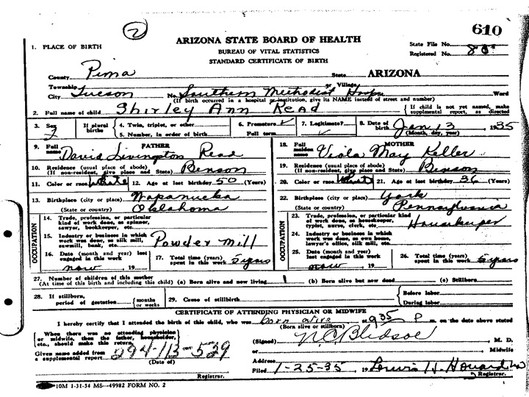 2
610
ARIZONA STATE BOARD OF HEALTH
BUREAU OF VITAL STATISTICS
STANDARD CERTIFICATE OF BIRTH
State File No.
Registered No. 80
1. PLACE OF BIRTH
County Pima State ARIZONA
Township Village
City Tucson No. Southern Methodist Hosp Ward
(If birth occurred in a hospital or institution, give its NAME instead of street and number)
2. Full name of child Shirley Ann Read (If child is not yet named, make supplemental report, as directed
3. Sex If plural births 4. Twin, triplet, or other 6. Premature 7. Legitimate? 8. Date of birth Jan 2 1935
5. Number, in order of birth Full term (Month, day, year)
9. Full name FATHER David Livingston Read
18. Full maiden name MOTHER Viola May Keller
10. Residence (usual place of abode) (If non-resident, give place and State) Benson
19. Residence (usual place of abode) (If non-resident, give place and State) Benson
11. Color or race White 12. Age at last birthday 50 (Years)
20. Color or race White 21. Age at last birthday 36 (Years)
13. Birthplace (city or place) Wapanucka
(State or country) Oklahoma
22. Birthplace (city or place) York
(State or country) Pennsylvania
OCCUPATION
14. Trade, profession, or particular kind of work done, as spinner, sawyer, bookkeeper, etc.
15. Industry or business in which work was done, as silk mill, sawmill, bank, etc. Powder mill
16. Date (month and year) last engaged in this work now 19 17. Total time (years) spent in this work
OCCUPATION
23. Trade, profession, or particular kind of work done, as housekeeper, typist, nurse, clerk, etc. Housekeeper
24. Industry or business in which work was done, as own home, lawyer's office, silk mill, etc.
25. Date (month and year) last engaged in this work now 19 26. Total time (years) spent in this work
27. Number of children of this mother
(At time of this birth and including this child) (a) Born alive and now living (b) Born alive but now dead (c) Stillborn
28. If stillborn, period of gestation months or weeks 29. Cause of stillbirth Before labor
During labor
CERTIFICATE OF ATTENDING PHYSICIAN OR MIDWIFE
I hereby certify that I attended the birth of this child, who was Born alive at 935 P m. on the date above stated
(Born alive or stillborn)
When there was no attending physician or midwife, then the father, householder, etc., should make this return.
(Signed) N.C. Bledsoe M. D.
or Midwife
Given name added from a supplemental report 294-113-529
(Date of)
Address
Registrar.
Filed 1-25-35 Lewis H. Howard
Registrar.
10M 1-31-34 MS-49982 FORM NO. 2